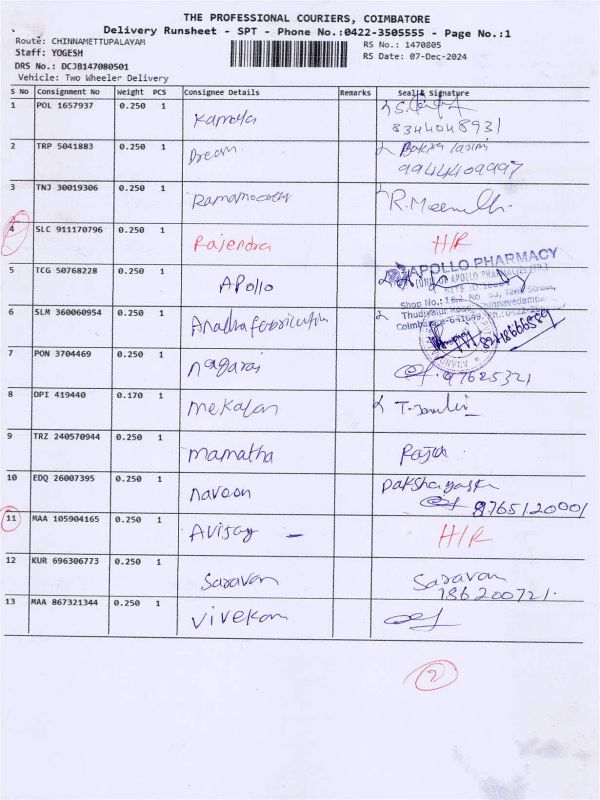 THE PROFESSIONAL COURIERS, COIMBATORE
Delivery Runsheet - SPT - Phone No.:0422-3505555 - Page No.:1
Route: CHINNAMETTUPALAYAM
RS No.: 1470805
Staff: YOGESH
RS Date: 07-Dec-2024
DRS No.: DCJB147080501
Vehicle: Two Wheeler Delivery
S No Consignment No Weight PCS Consignee Details Remarks Seal & Signature
1 POL 1657937 0.250 1 Kamala
8344048931
2 TRP 5041883 0.250 1 Dream
9944409997
3 TNJ 30019306 0.250 1
4 SLC 911170796 0.250 1 Rajendra H/R
5 TCG 50768228 0.250 1 Apollo
APOLLO PHARMACY
6 SLM 360060954 0.250 1
7 PON 3704469 0.250 1 nagaraj
97625321
8 DPI 419440 0.170 1 mekalan
9 TRZ 240570944 0.250 1 mamatha
10 EDQ 26007395 0.250 1 navoon
8765120001
11 MAA 105904165 0.250 1 H/R
12 KUR 696306773 0.250 1 Saravan Saravan
186200721.
13 MAA 867321344 0.250 1 Vivekan
2